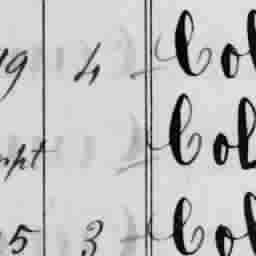 19 4 Col
mpt Col
15 3 Col